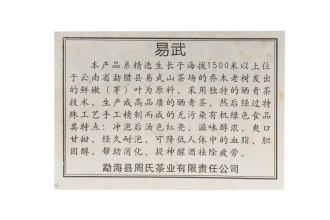 易武
本产品系精选生长于海拔1500米以上位
于云南省勐腊县易武山茶场的乔木老树发出
的鲜嫩（芽）叶为原料，采用独特的晒青茶
技术，生产成高品质的晒青茶，然后经过特
殊工艺手工精制而成的无污染有机绿色食品
其特点：冲泡后汤色红亮，滋味醇浓，爽口
甘甜，经久耐泡，可降低人体中的血脂、胆
固醇，帮助消化，提神醒酒祛除疲劳。
勐海县周氏茶业有限责任公司